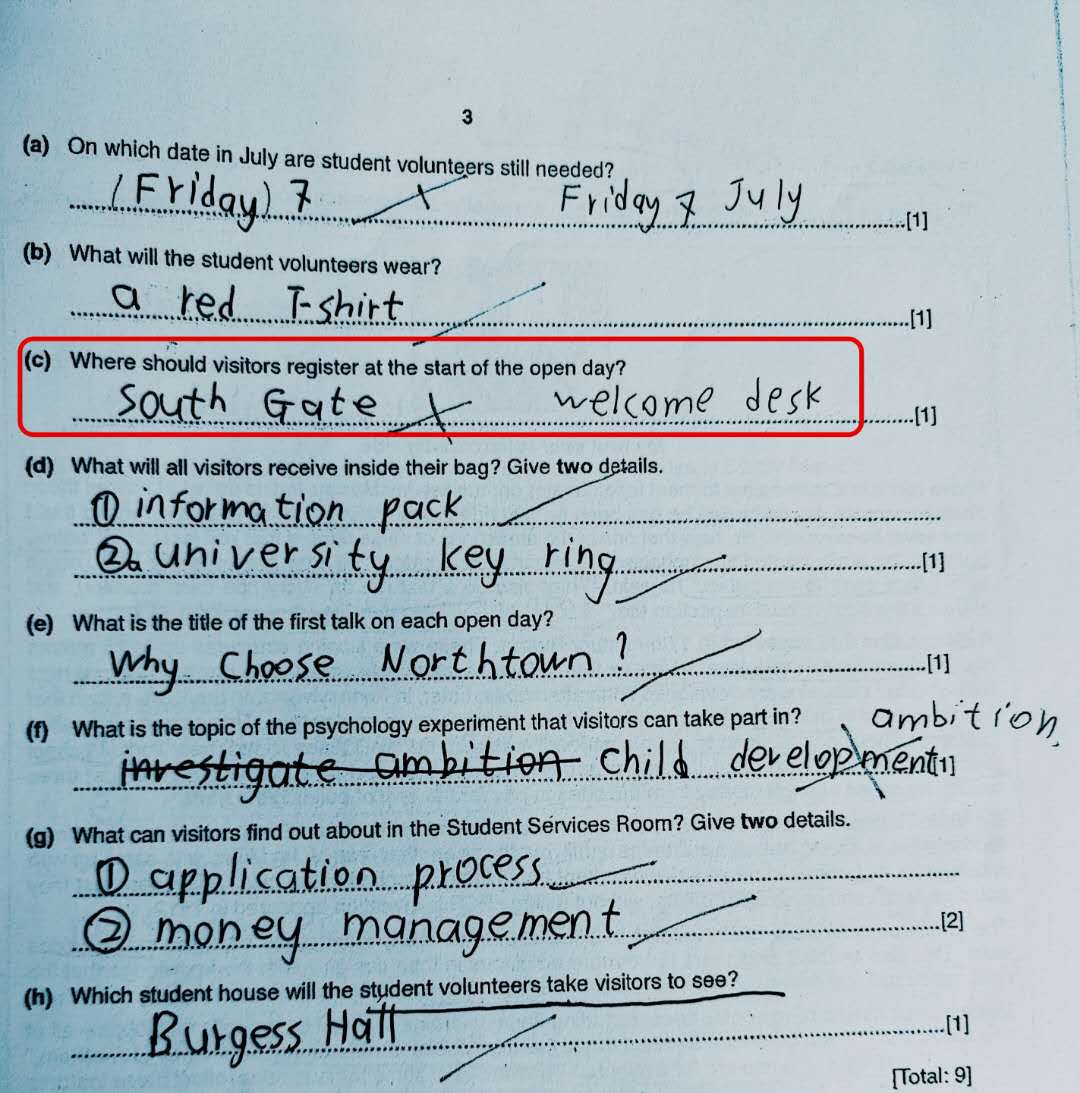 3
(a) On which date in July are student volunteers still needed?
(Friday) 7 Friday 7 July [1]
(b) What will the student volunteers wear?
a red T-shirt [1]
(c) Where should visitors register at the start of the open day?
South Gate welcome desk [1]
(d) What will all visitors receive inside their bag? Give two details.
① information pack
② a university key ring [1]
(e) What is the title of the first talk on each open day?
Why Choose Northtown? [1]
(f) What is the topic of the psychology experiment that visitors can take part in? ambition
investigate ambition child development [1]
(g) What can visitors find out about in the Student Services Room? Give two details.
① application process
② money management [2]
(h) Which student house will the student volunteers take visitors to see?
Burgess Hall [1]
[Total: 9]